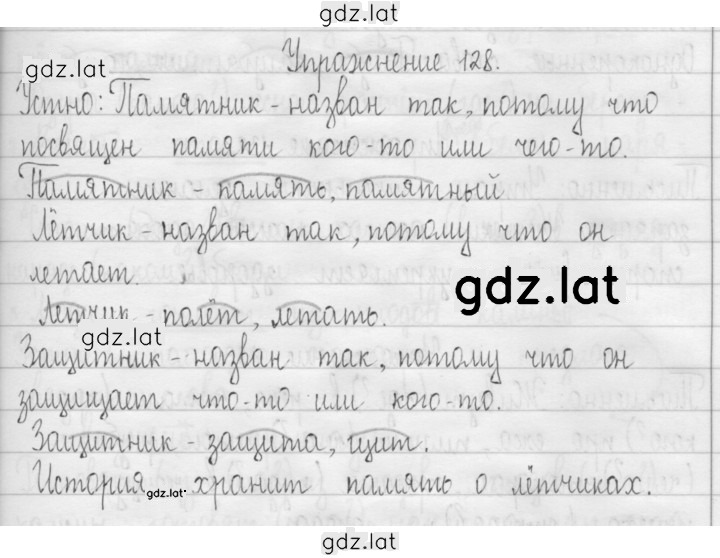 gdz.lat
Упражнение 128.
gdz.lat
Устно: Памятник - назван так, потому что
посвящен памяти кого-то или чего-то.
Памятник - память, памятный
Лётчик - назван так, потому что он
летает.
gdz.lat
Летчик - полёт, летать.
gdz.lat
Защитник - назван так, потому что он
защищает что-то или кого-то.
Защитник - защита, щит.
История gdz.lat хранит память о лётчиках.
gdz.lat